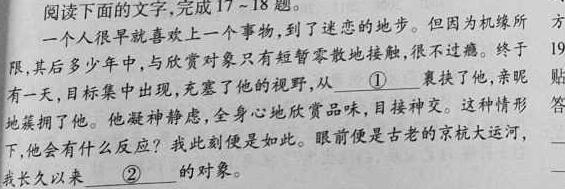 阅读下面的文字,完成17~18题。
一个人很早就喜欢上一个事物,到了迷恋的地步。但因为机缘所
限,其后多少年中,与欣赏对象只有短暂零散地接触,很不过瘾。终于
有一天,目标集中出现,充塞了他的视野,从 ① 裹挟了他,亲昵
地簇拥了他。他凝神静虑,全身心地欣赏品味,目接神交。这种情形
下,他会有什么反应?我此刻便是如此。眼前便是古老的京杭大运河,
我长久以来 ② 的对象。
方
19
贴
答